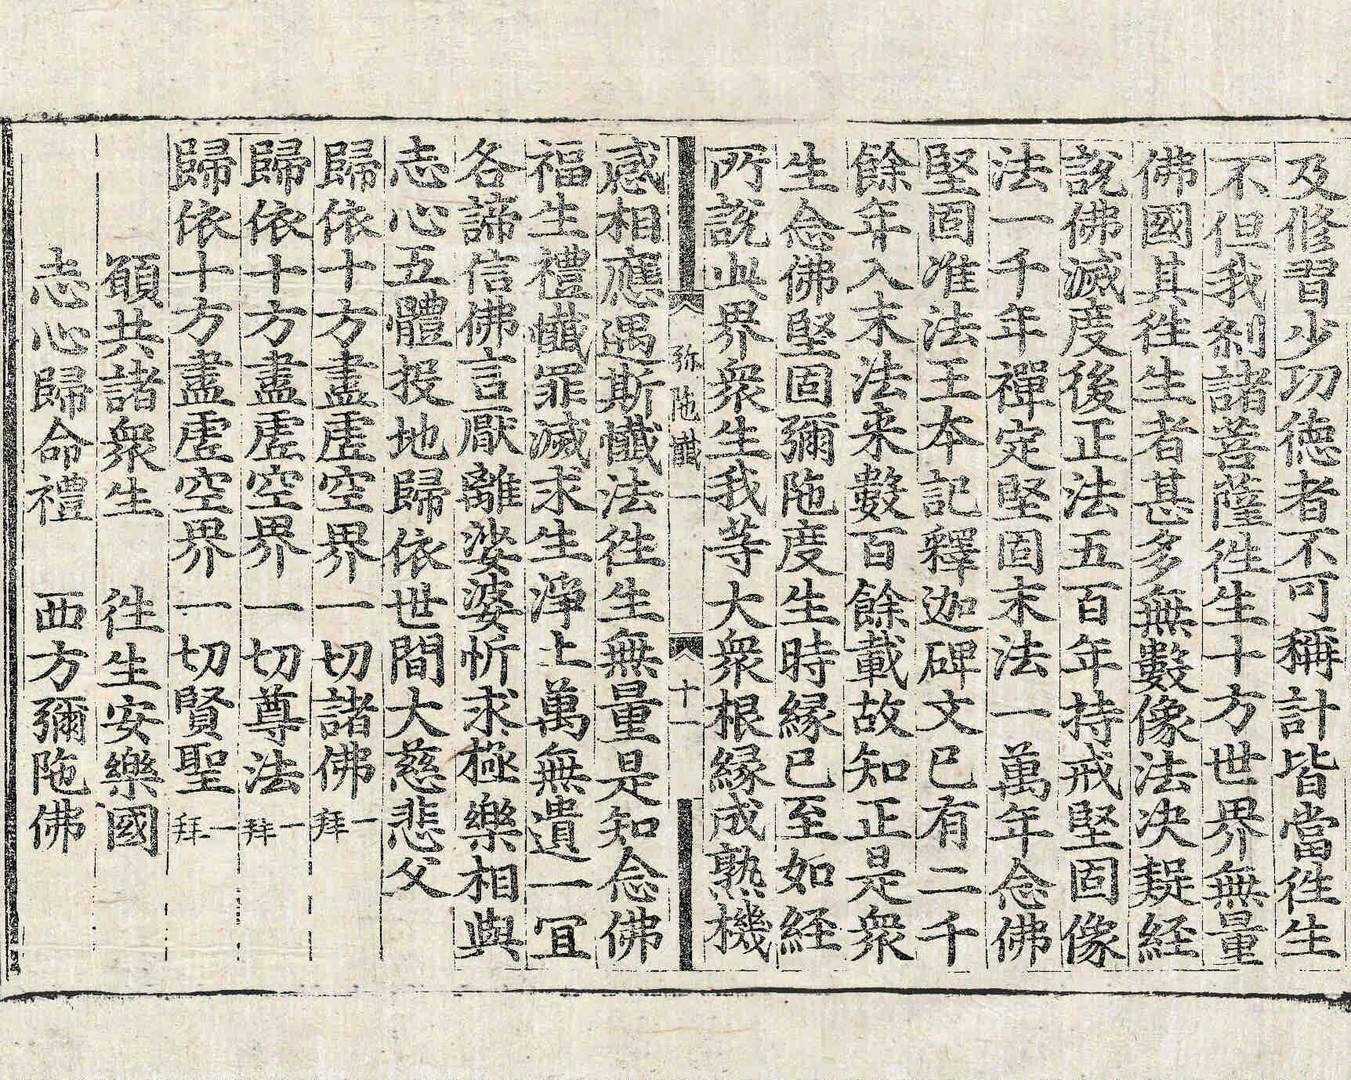 及修習少功德者不可稱計皆當徃生
不但我刹諸菩薩徃生十方世界無量
佛國其徃生者甚多無數像法决疑経
說佛滅度後正法五百年持戒堅固像
法一千年禪定堅固末法一萬年念佛
堅固准法王本記釋迦碑文已有二千
餘年入末法来數百餘載故知正是衆
生念佛堅固彌陁度生時縁已至如経
所說此界衆生我等大衆根縁成熟機
弥陁懺一
十一
感相應遇斯懺法徃生無量是知念佛
福生禮懺罪滅求生淨土萬無遺一冝
各諦信佛言厭離娑婆忻求極樂相與
志心五體投地歸依世間大慈悲父
歸依十方盡虛空界一切諸佛一拜
歸依十方盡虛空界一切尊法一拜
歸依十方盡虛空界一切賢聖一拜
願共諸衆生　徃生安樂國
志心歸命禮　西方彌陁佛